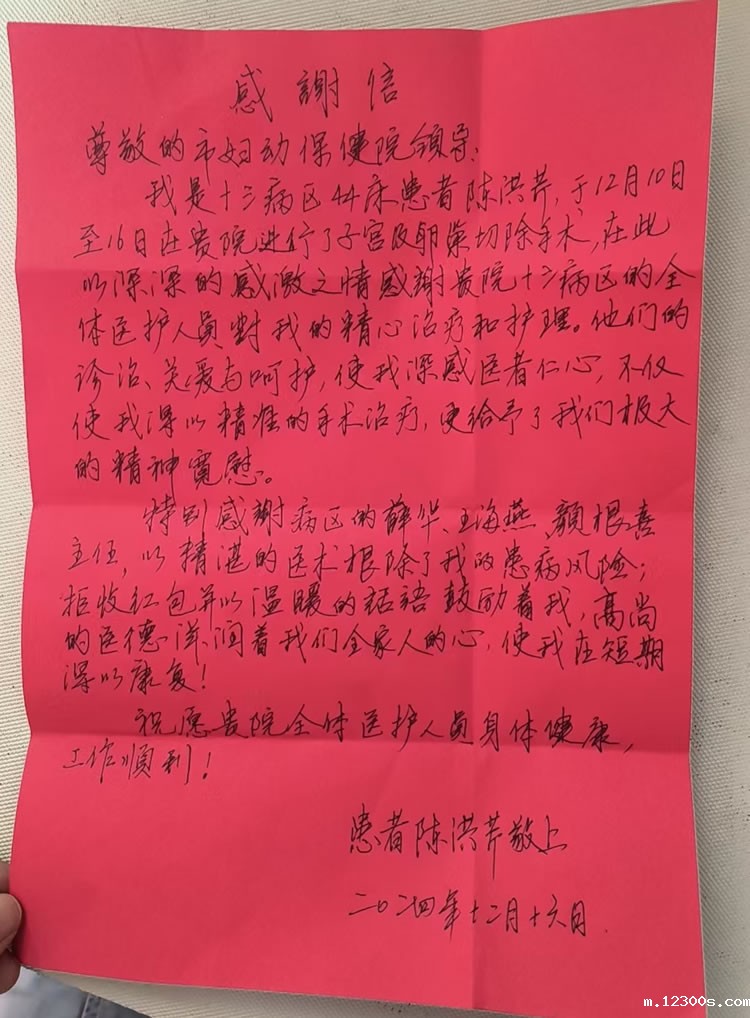 感謝信
尊敬的市妇幼保健院领导:
我是十三病区44床患者陈洪芹,于12月10日
至16日在贵院进行了子宫及卵巢切除手术,在此
以深深的感激之情感謝贵院十三病区的全
体医护人员對我的精心治疗和护理。他们的
诊治、关爱与呵护,使我深感医者仁心,不仅
使我得以精准的手术治疗,更给予了我们极大
的精神宽慰。
特别感謝病区的薛华、王海燕、颜根喜
主任,以精湛的医术根除了我的患病风险;
拒收红包并以温暖的話語鼓励着我,高尚
的医德滋润着我们全家人的心,使我在短期
得以康复!
祝愿贵院全体医护人员身体健康,
工作顺利!
患者陈洪芹敬上
二〇二四年十二月十六日.
m.12300s.com